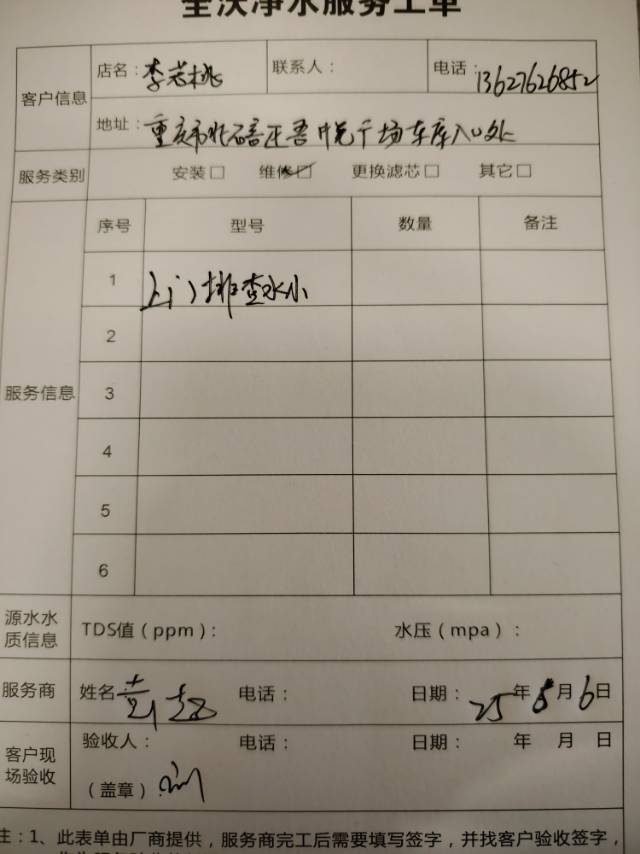 全沃净水服务工单
客户信息 店名：李芯桃 联系人： 电话：13627626852
地址：重庆市北碚正吾悦广场车库入口处
服务类别 安装□ 维修☑ 更换滤芯□ 其它□
服务信息 序号 型号 数量 备注
1 上门排查水小
2
3
4
5
6
源水水质信息 TDS值（ppm）： 水压（mpa）：
服务商 姓名 电话： 日期：25年8月6日
客户现场验收 验收人： 电话： 日期： 年 月 日
（盖章）刘
注：1、此表单由厂商提供，服务商完工后需要填写签字，并找客户验收签字，